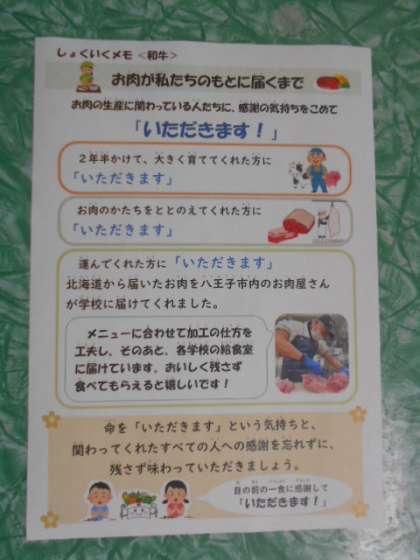 しょくいくメモ <和牛>
お肉が私たちのもとに届くまで
お肉の生産に関わっている人たちに、感謝の気持ちをこめて
「いただきます！」
２年半かけて、大きく育ててくれた方に
「いただきます」
お肉のかたちをととのえてくれた方に
「いただきます」
運んでくれた方に「いただきます」
北海道から届いたお肉を八王子市内のお肉屋さん
が学校に届けてくれました。
メニューに合わせて加工の仕方を
工夫し、そのあと、各学校の給食室
に届けています。おいしく残さず
食べてもらえると嬉しいです！
命を「いただきます」という気持ちと、
関わってくれたすべての人への感謝を忘れずに、
残さず味わっていただきましょう。
目の前の一食に感謝して
「いただきます！」